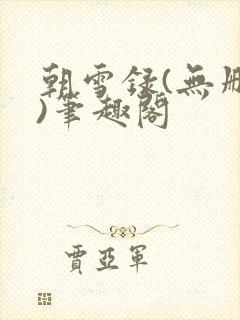 朝雪録(無刪
)筆趣閣
賈亞軍